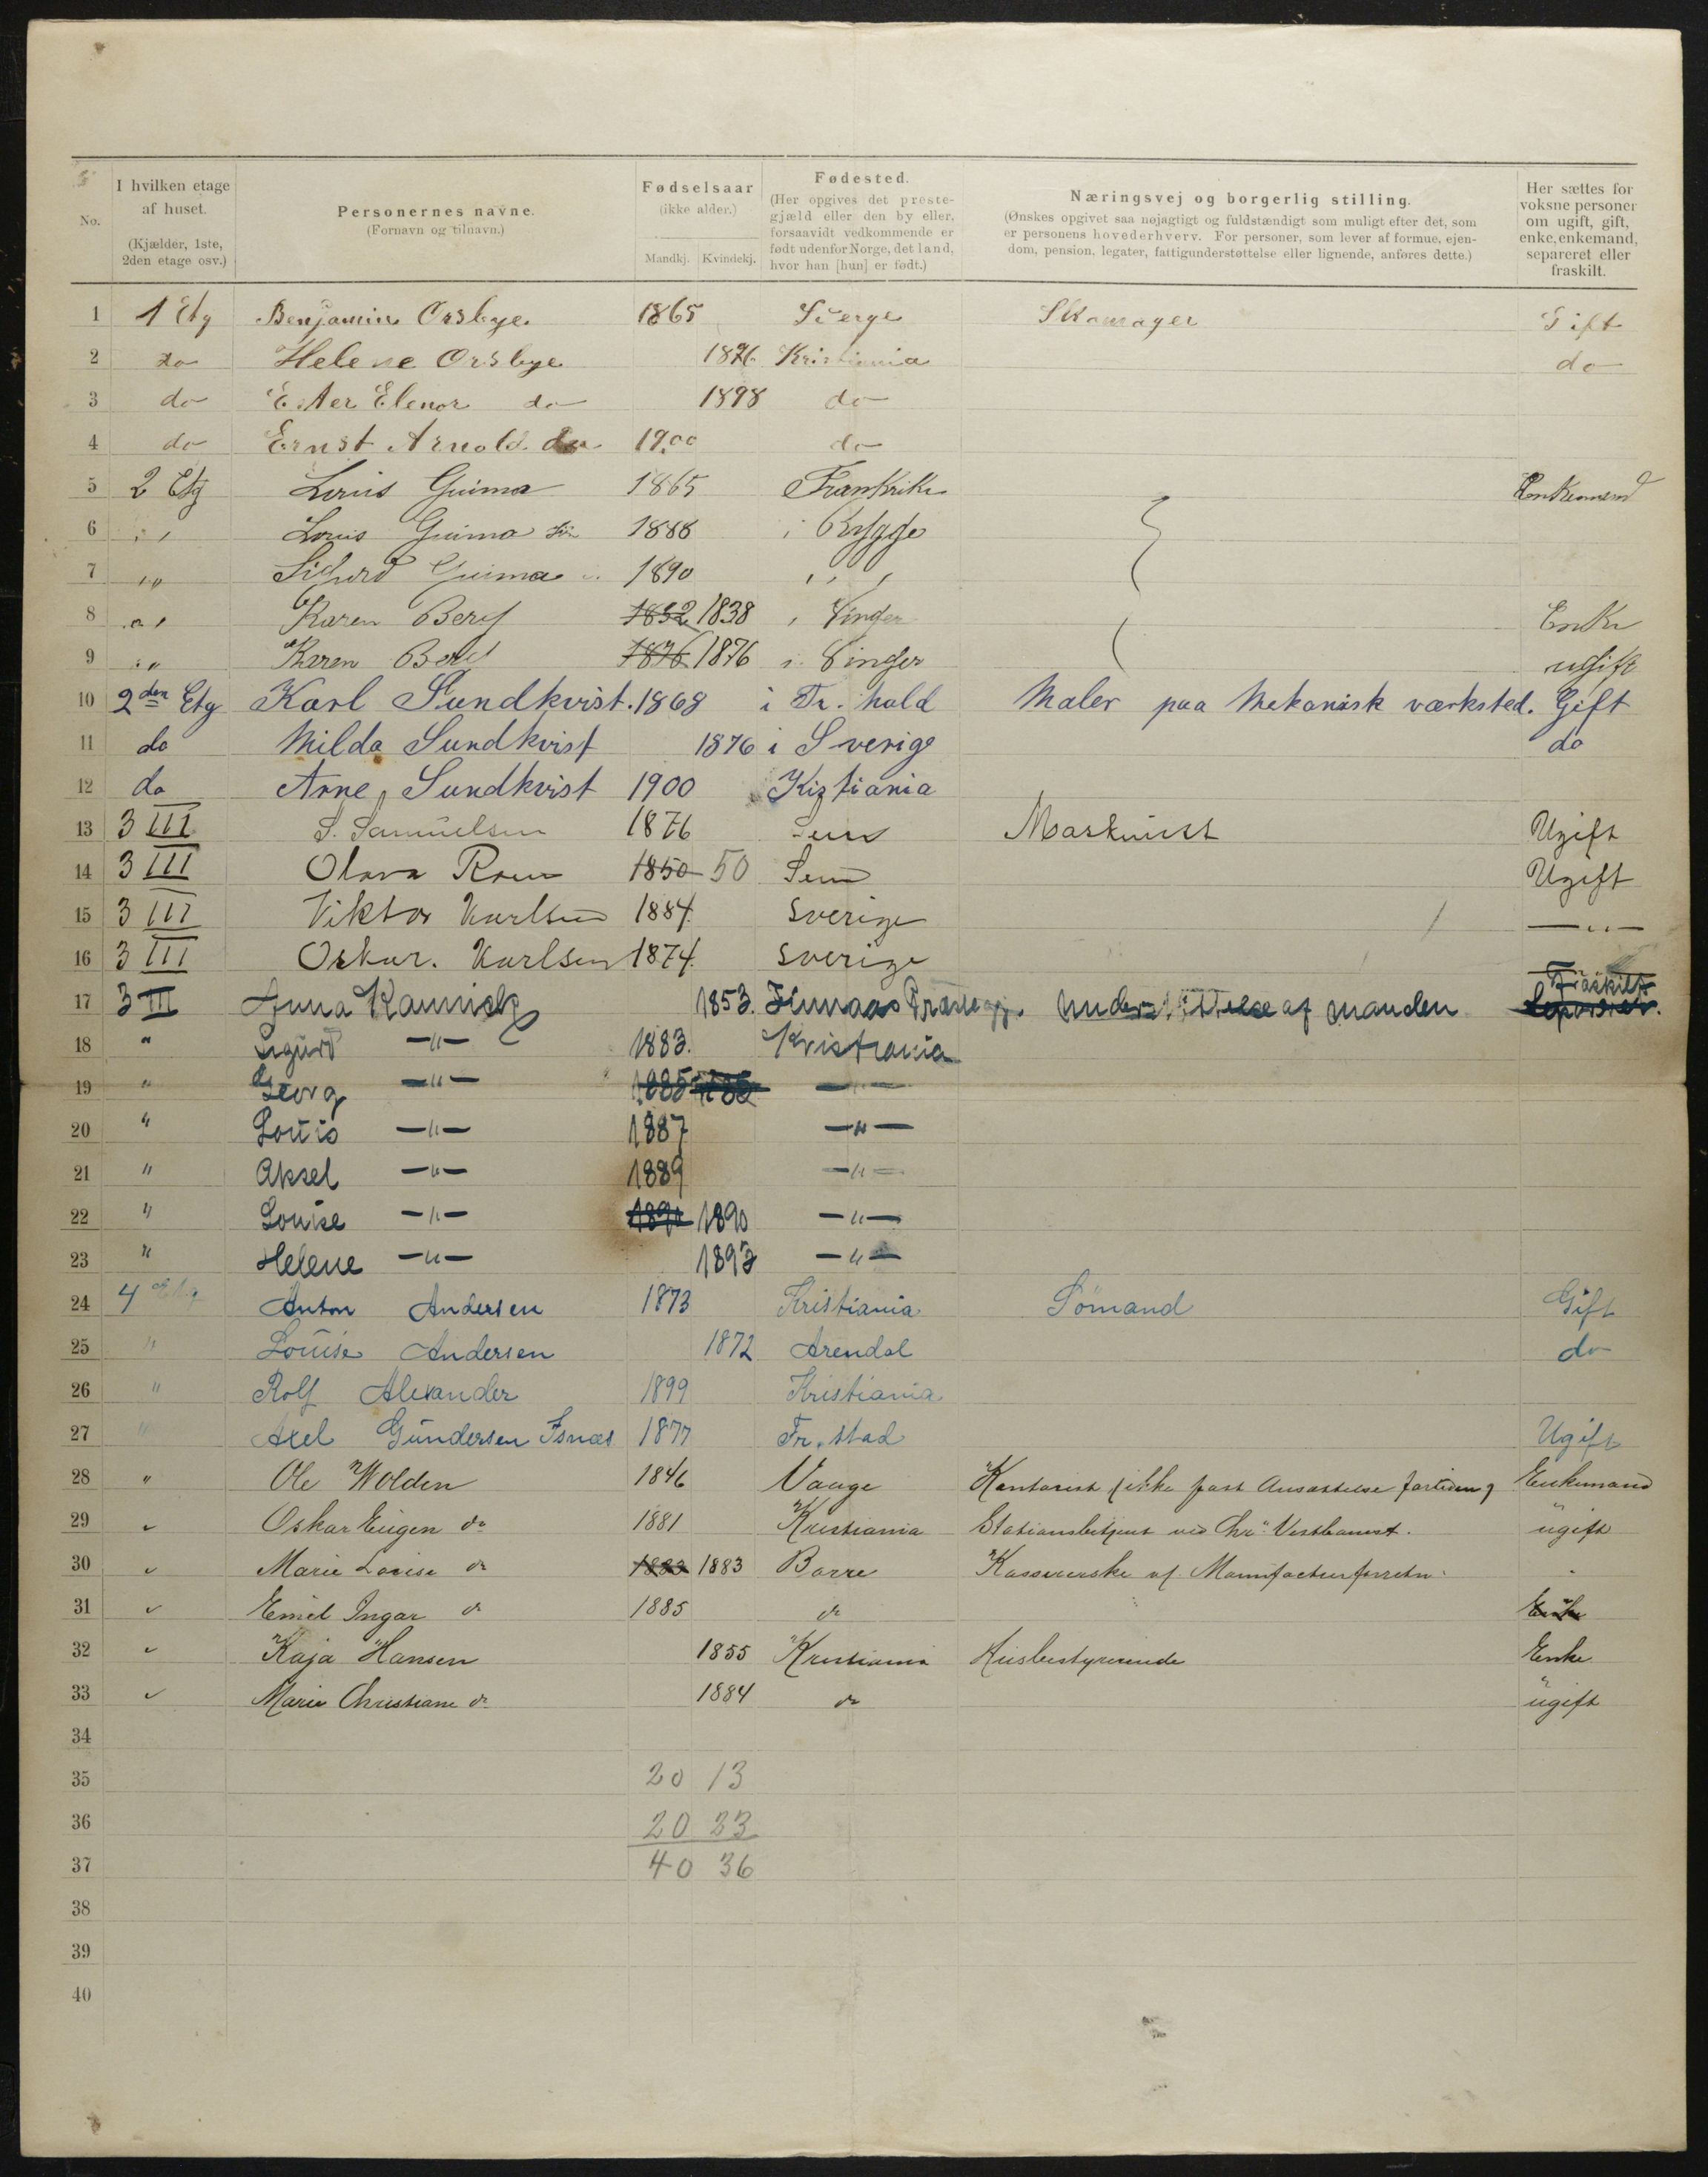 No.
I hvilken etage af huset. (Kjælder, 1ste, 2den etage osv.)
Personernes navne. (Fornavn og tilnavn.)
Fødselsaar (ikke alder.) Mandkj. Kvindekj.
Fødested. (Her opgives det prestegjæld eller den by eller, forsaavidt vedkommende er født udenfor Norge, det land, hvor han [hun] er født.)
Næringsvej og borgerlig stilling. (Ønskes opgivet saa nøjagtigt og fuldstændigt som muligt efter det, som er personens hovederhverv. For personer, som lever af formue, ejendom, pension, legater, fattigunderstøttelse eller lignende, anføres dette.)
Her sættes for voksne personer om ugift, gift, enke, enkemand, separeret eller fraskilt.
1 1 Etg Benjamin Orsbye 1865 Sverge Skomager Gift
2 do Helene Orsbye 1876 Kristiania do
3 do Ester Elenor do 1898 do
4 do Ernst Arnold do 1900 do
5 2 Etg Louis Guima 1865 Frankrike Enkemand
6 " Louis Guima 1888 i Rygge
7 " Sigurd Guima 1890 " "
8 " Karen Berg 1832 1838 i Vinger Enke
9 " Karen Berg 1876 1876 i Vinger ugift
10 2den Etg Karl Sundkvist. 1868 i Fr. hald Maler paa Mekanisk værksted. Gift
11 do Milda Sundkvist 1876 i Sverige do
12 do Arne Sundkvist 1900 Kistiania
13 3 III S. Samuelsen 1876 Maskinist Ugift
14 3 III Olava 1850 50 Ugift
15 3 III Viktor Karlsen 1884. Sverige — " —
16 3 III Oskar. Karlsen 1874. Sverige
17 3 III Anna 1853. Finnaas af manden Fraskilt Separeret.
18 " Sigurd — " — 1883. Kristiania
19 " Georg — " — 1885 — " —
20 " Louis — " — 1887 — " —
21 " Aksel — " — 1889 — " —
22 " Louise — " — 1890 1890 — " —
23 " Helene — " — 1893 — " —
24 4 Etg Anton Andersen 1873 Kristiania Sömand Gift
25 " Louise Andersen 1872 Arendal do
26 " Rolf Alexander 1899 Kristiania
27 " Axel Gundersen Isnæs 1877 Fr. stad Ugift
28 " Ole Wolden 1846 Vaage Kontorist (ikke fast Ansættelse fortiden) Enkemand
29 " Oskar Eugen do 1881 Kristiania Stationsbetjent ved Chr. Vestbanest. ugift
30 " Marie Lovise do 1883 1883 Borre Kassererske af Manufacturforretn. "
31 " Emil Ingar do 1885 do Enke
32 " Kaja Hansen 1855 Kristiania Husbestyrerinde Enke
33 " Marie Christiane do 1884 do ugift
34
35 20 13
36 20 23
37 40 36
38
39
40